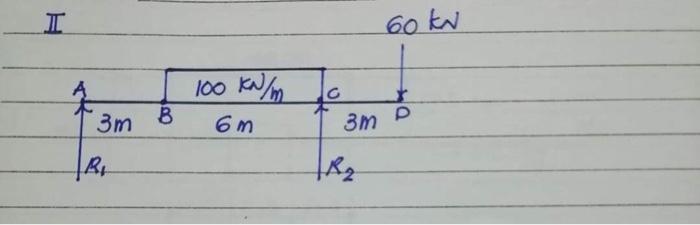 II
60 kN
A
100 KN/m
C
3m
B
6m
3m
D
R1
R2